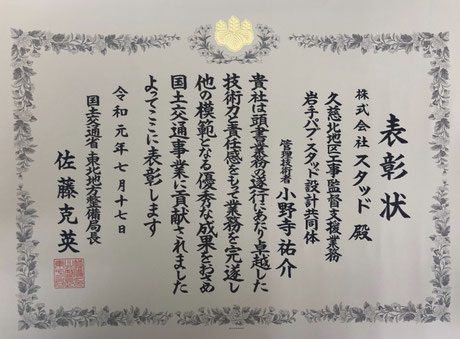 表彰状
株式会社 スタッド 殿
久慈北地区工事監督支援業務
岩手パブ・スタッド設計共同体
管理技術者 小野寺祐介
貴社は頭書業務の遂行にあたり卓越した
技術力と責任感をもって業務を完遂し
他の模範となる優秀な成果をおさめ
国土交通事業に貢献されました
よってここに表彰します
令和元年七月十七日
国土交通省 東北地方整備局長
佐藤克英